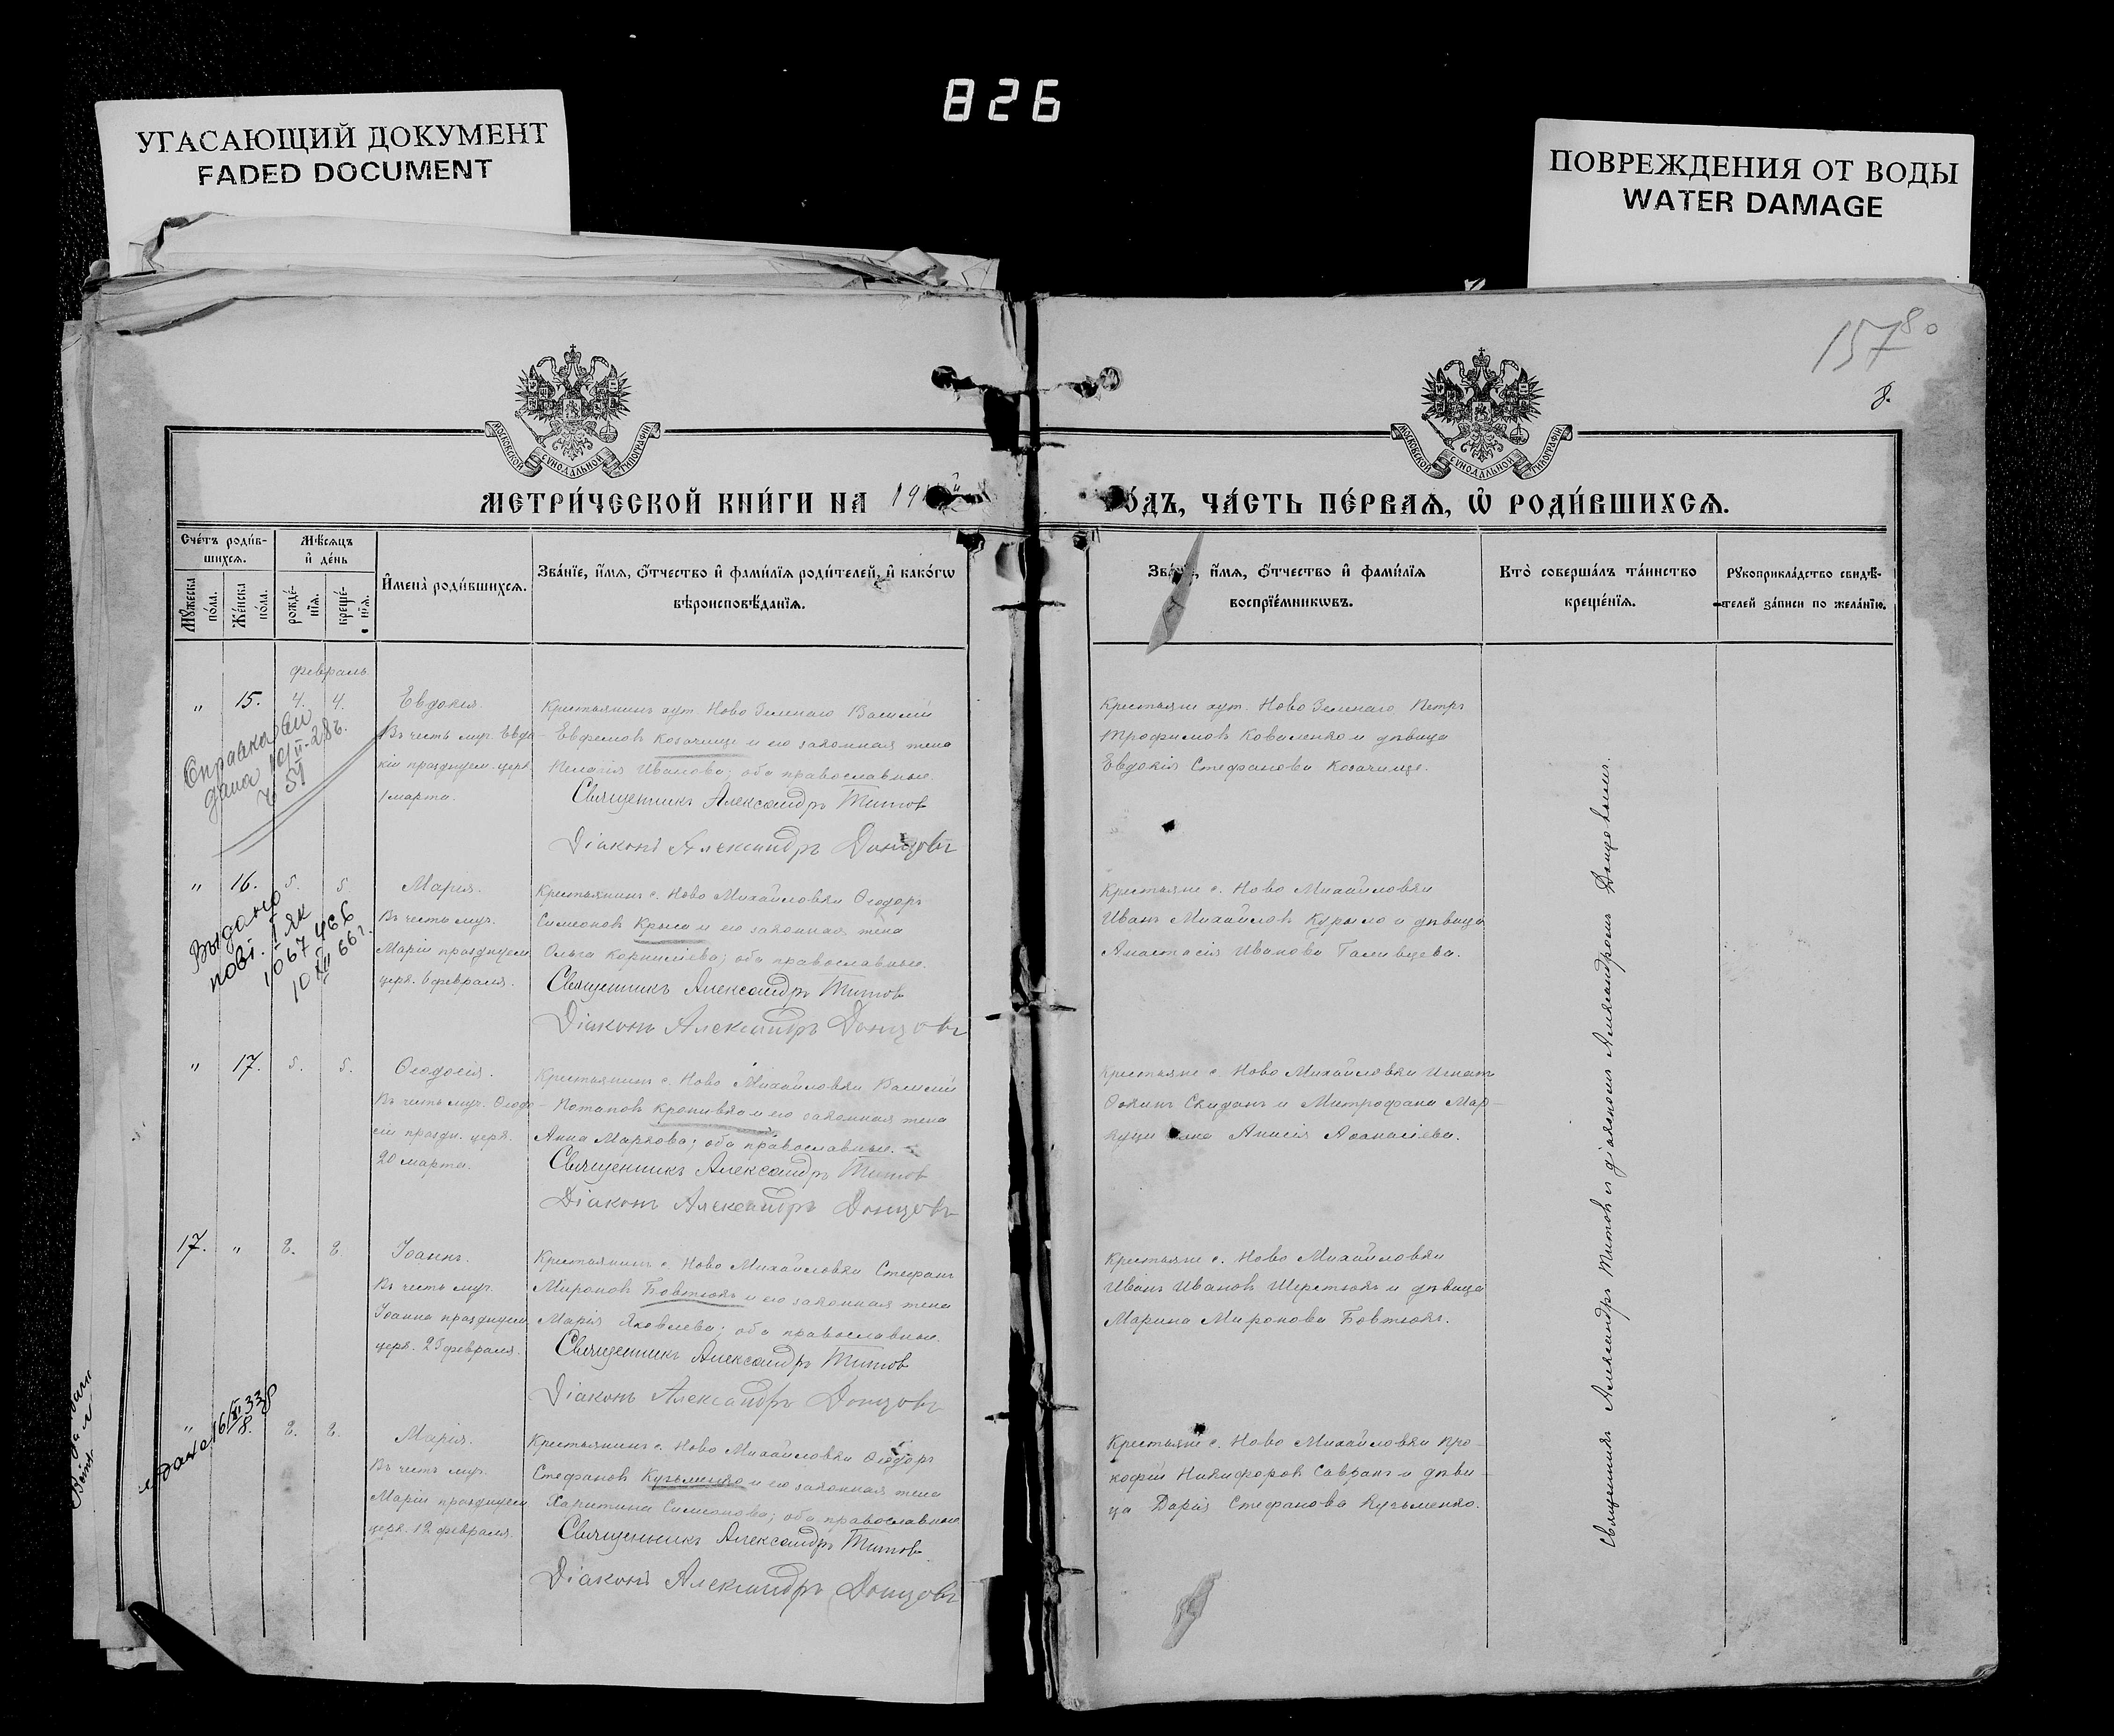 826
УГАСАЮЩИЙ ДОКУМЕНТ
FADED DOCUMENT
ПОВРЕЖДЕНИЯ ОТ ВОДЫ
WATER DAMAGE
157
80
8.
МОСКОВСКОЙ СѴНОДАЛЬНОЙ ТИПОГРАФІИ
МОСКОВСКОЙ СѴНОДАЛЬНОЙ ТИПОГРАФІИ
МЕТРИ́ЧЕСКОЙ КНИ́ГИ НА 19
О́ДЪ, ЧА́СТЬ ПЕ́РВАѦ, Ѽ РОДИ́ВШИХСѦ.
Сче́тъ роди́в-
шихсѧ.
Мѣ́сѧцъ
и҆ де́нь
Мꙋ́жеска
по́ла.
Же́нска
по́ла.
рожде́-
нїѧ.
креще́-
нїѧ.
И҆мена̀ роди́вшихсѧ.
Зва́нїе, и҆́мѧ, ѻ҆́тчество и҆ фами́лїѧ роди́телей, и҆ како́гѡ
вѣроисповѣ́данїѧ.
Зва́нїе, и҆́мѧ, ѻ҆́тчество и҆ фами́лїѧ
воспрїе́мникѡвъ.
Кто̀ соверша́лъ та́инство
креще́нїѧ.
Рꙋкоприкла́дство свидѣ́-
телей за́писи по жела́нїю.
февраль
" 15. 4. 4. Евдокія.
Въ честь муч. Евдо-
кіи празднуем. церк.
1 марта.
Крестьянинъ хут. Ново Зеленаго Василій
Евфемовъ Козачище и его законная жена
Пелагія Иванова; оба православные.
Священникъ Александръ Титов
Діаконъ Александръ Донцовъ
Крестьяне хут. Ново Зеленаго Петръ
Трофимовъ Коваленко и дѣвица
Евдокія Стефанова Козачище.
Справка
дана 10/II-28г.
№ 51
" 16. 5. 5 Марія.
Въ честь муч.
Маріи празднуем
церк. 6 февраля.
Крестьянинъ с. Ново Михайловки Ѳеодоръ
Симеоновъ Крыса и его законная жена
Ольга Корниліева; оба православные.
Священникъ Александръ Титов
Діаконъ Александръ Донцовъ
Крестьяне с. Ново Михайловки
Иванъ Михайловъ Курыло и дѣвица
Анастасія Иванова
Выдано
повт. I ЯК
1067466
10 XII 66 г.
" 17. 5. 5. Ѳеодосія.
Въ честь муч. Ѳеодо-
сіи праздн. церк.
20 марта.
Крестьянинъ с. Ново Михайловки Василій
Потаповъ Кропивка и его законная жена
Анна Маркова; оба православные.
Священникъ Александръ Титов
Діаконъ Александръ Донцовъ
Крестьяне с. Ново Михайловки Игнатъ
Скиданъ и Митрофана Мар-
Анисія Аѳанасіева.
17. " 8. 8. Іоаннъ.
Въ честь муч.
Іоанна празднуем.
церк. 25 февраля.
Крестьянинъ с. Ново Михайловки Стефанъ
Мироновъ Бовтюкъ и его законная жена
Марія Яковлева; оба православные.
Священникъ Александръ Титов
Діаконъ Александръ Донцовъ
Крестьяне с. Ново Михайловки
Иванъ Ивановъ Шерстюкъ и дѣвица
Марина Миронова Бовтюкъ.
" 18. 8. 8. Марія.
Въ честь муч.
Маріи празднуем
церк. 12 февраля.
Крестьянинъ с. Ново Михайловки Ѳеодоръ
Стефановъ Кузьменко и его законная жена
Харитина Симеонова; оба православные
Священникъ Александръ Титов
Діаконъ Александръ Донцовъ
Крестьяне с. Ново Михайловки Про-
кофій Никифоровъ Савранъ и дѣви-
ца Дарія Стефанова Кузьменко.
Священникъ Александръ Титовъ и діаконъ Александромъ Донцовымъ.